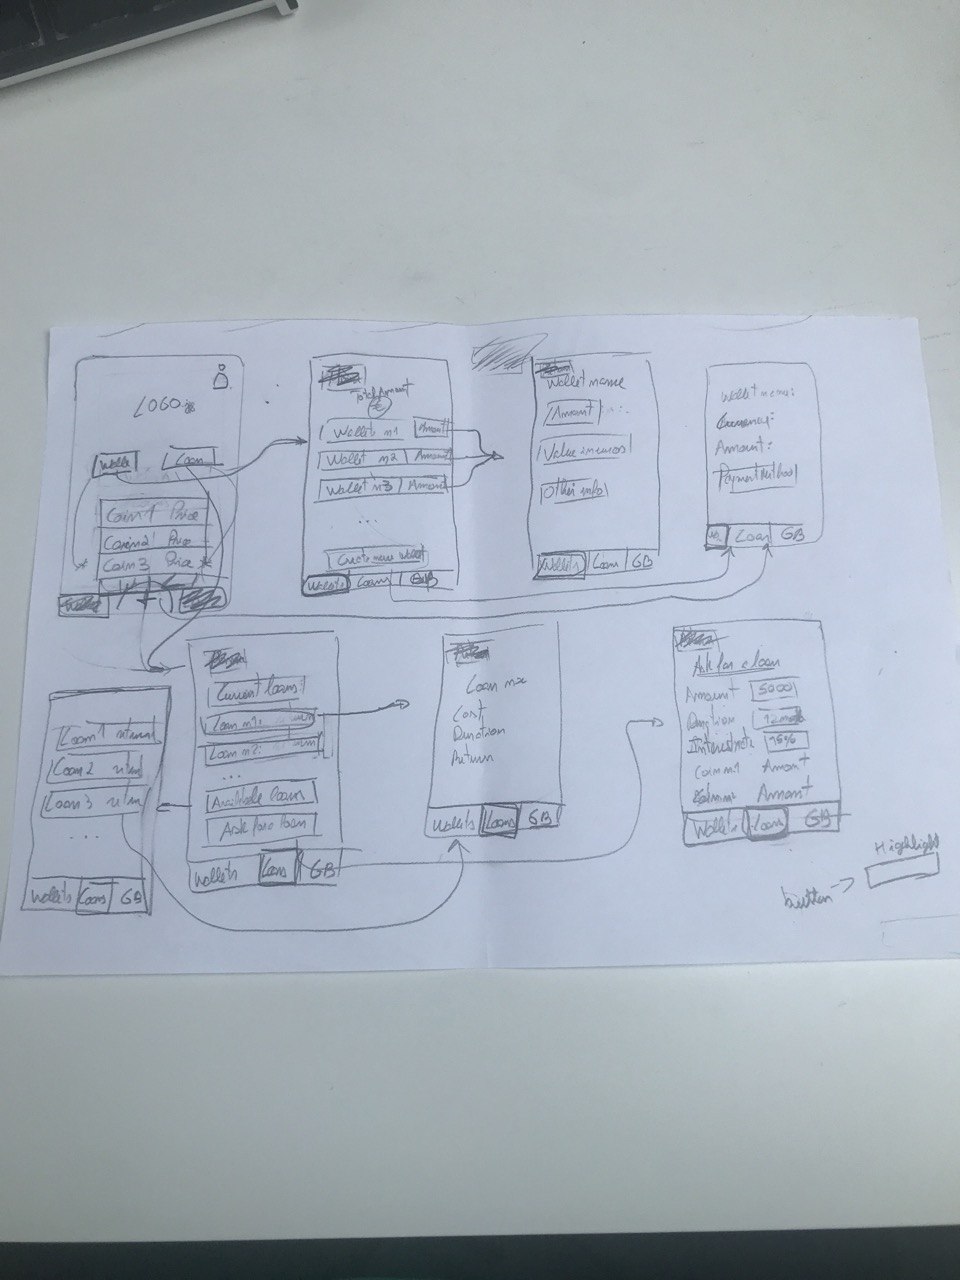 LOGO
Wallet
Loan
Coin 1 Price
Coin 2 Price
Coin 3 Price
Total Amount
€
Wallet n1 Amount
Wallet n2 Amount
Wallet n3 Amount
...
Create new wallet
Wallets Loans GB
Wallet name
Amount
Other info
Wallets Loans GB
Wallet name:
Currency:
Amount:
Payment Method
Loan GB
Loan 1 return
Loan 2 return
Loan 3 return
...
Wallets Loans GB
Current loans:
Loan n1:
Loan n2:
...
Available loans
Ask for a loan
Wallets Loans GB
Loan n2
Cost
Duration
Return
Wallets Loans GB
Ask for a loan
Amount 5000
Duration
Interest rate 15%
Coin n1 Amount
Coin n2 Amount
Wallets Loans GB
Highlight
button